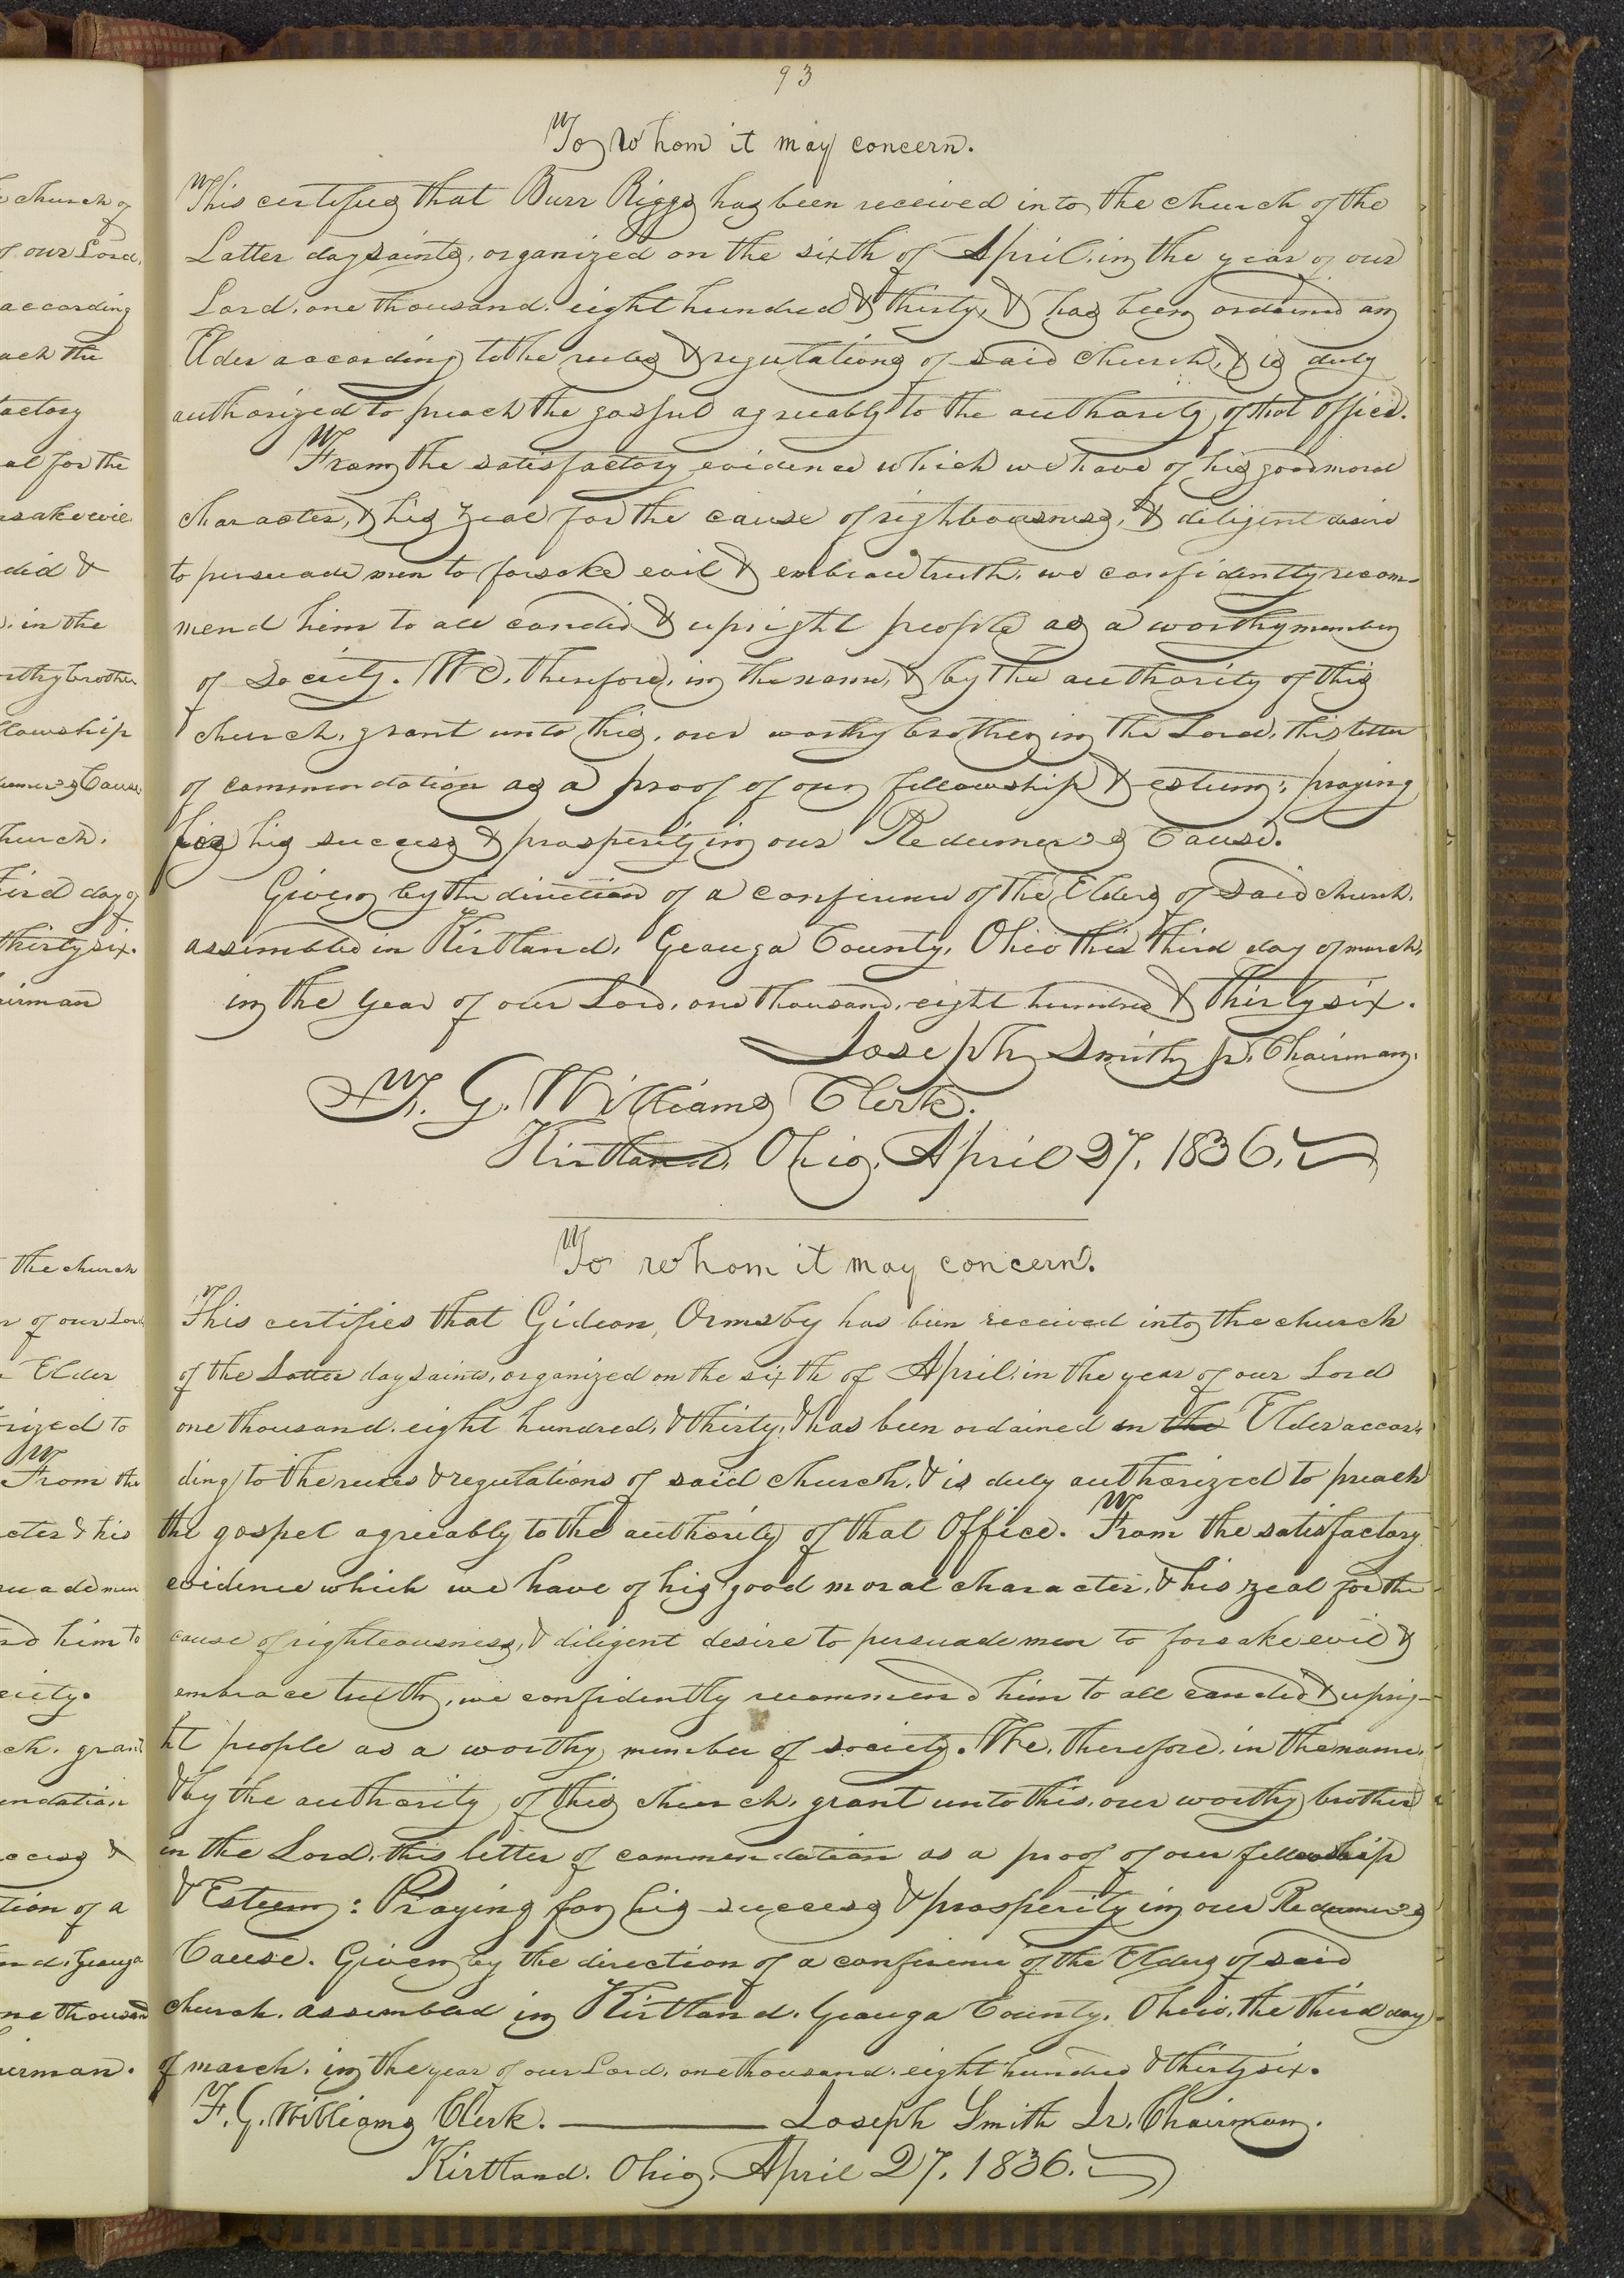 church of
of our Lord,
according
ach the
factory
al for the
rsake evil
did &
. in the
rthy brother
llowship
eemer's Cause
hurch.
ird day of
thirty six.
airman
the church
r of our Lord
Elder
rized to
From the
cter & his
suade men
nd him to
ciety.
ch. grant
endation
ccess &
tion of a
nd. Geauga
ne thousand
irman.
93
To whom it may concern.
This certifies that Burr Riggs has been received into the church of the
Latter day saints, organized on the sixth of April, in the year of our
Lord, one thousand, eight hundred & thirty, & has been ordained an
Elder according to the rules & regulations of said church, & is duly
authorized to preach the gospel agreeably to the authority of that office.
From the satisfactory evidence which we have of his good moral
character, & his zeal for the cause of righteousness, & diligent desire
to persuade men to forsake evil & embrace truth, we confidently recom-
mend him to all candid & upright people as a worthy member
of society. We, therefore, in the name, & by the authority of this
church, grant unto this, our worthy brother in the Lord, this letter
of commendation as a proof of our fellowship & esteem; praying
for his success & prosperity in our Redeemer's Cause.
Given by the direction of a conference of the Elders of said church,
assembled in Kirtland, Geauga County, Ohio this third day of march,
in the year of our Lord, one thousand, eight hundred & thirty six.
Joseph Smith jr. Chairman.
F. G. Williams Clerk.
Kirtland, Ohio, April 27, 1836.
To whom it may concern.
This certifies that Gideon Ormsby has been received into the church
of the Latter day saints, organized on the sixth of April, in the year of our Lord
one thousand, eight hundred, & thirty, & has been ordained an the Elder accor-
ding to the rules & regulations of said church, & is duly authorized to preach
the gospel agreeably to the authority of that Office. From the satisfactory
evidence which we have of his good moral character, & his zeal for the
cause of righteousness, & diligent desire to persuade men to forsake evil &
embrace truth, we confidently recommend him to all candid & uprig-
ht people as a worthy member of society. We, therefore, in the name,
& by the authority of this church, grant unto this, our worthy brother
in the Lord, this letter of commendation as a proof of our fellowship
& Esteem: Praying for his success & prosperity in our Redeemer's
Cause. Given by the direction of a conference of the Elders of said
church, assembled in Kirtland, Geauga County, Ohio, the third day
of march, in the year of our Lord, one thousand, eight hundred & thirty six.
F. G. Williams Clerk. Joseph Smith Jr. Chairman.
Kirtland, Ohio, April 27, 1836.